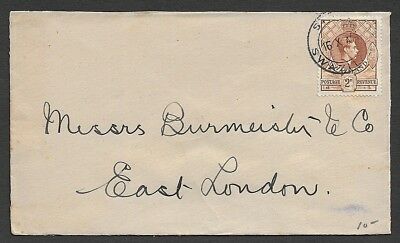 16 X
SWAZILAND
POSTAGE REVENUE
2d
Messrs Burmeister & Co
East London.
10-